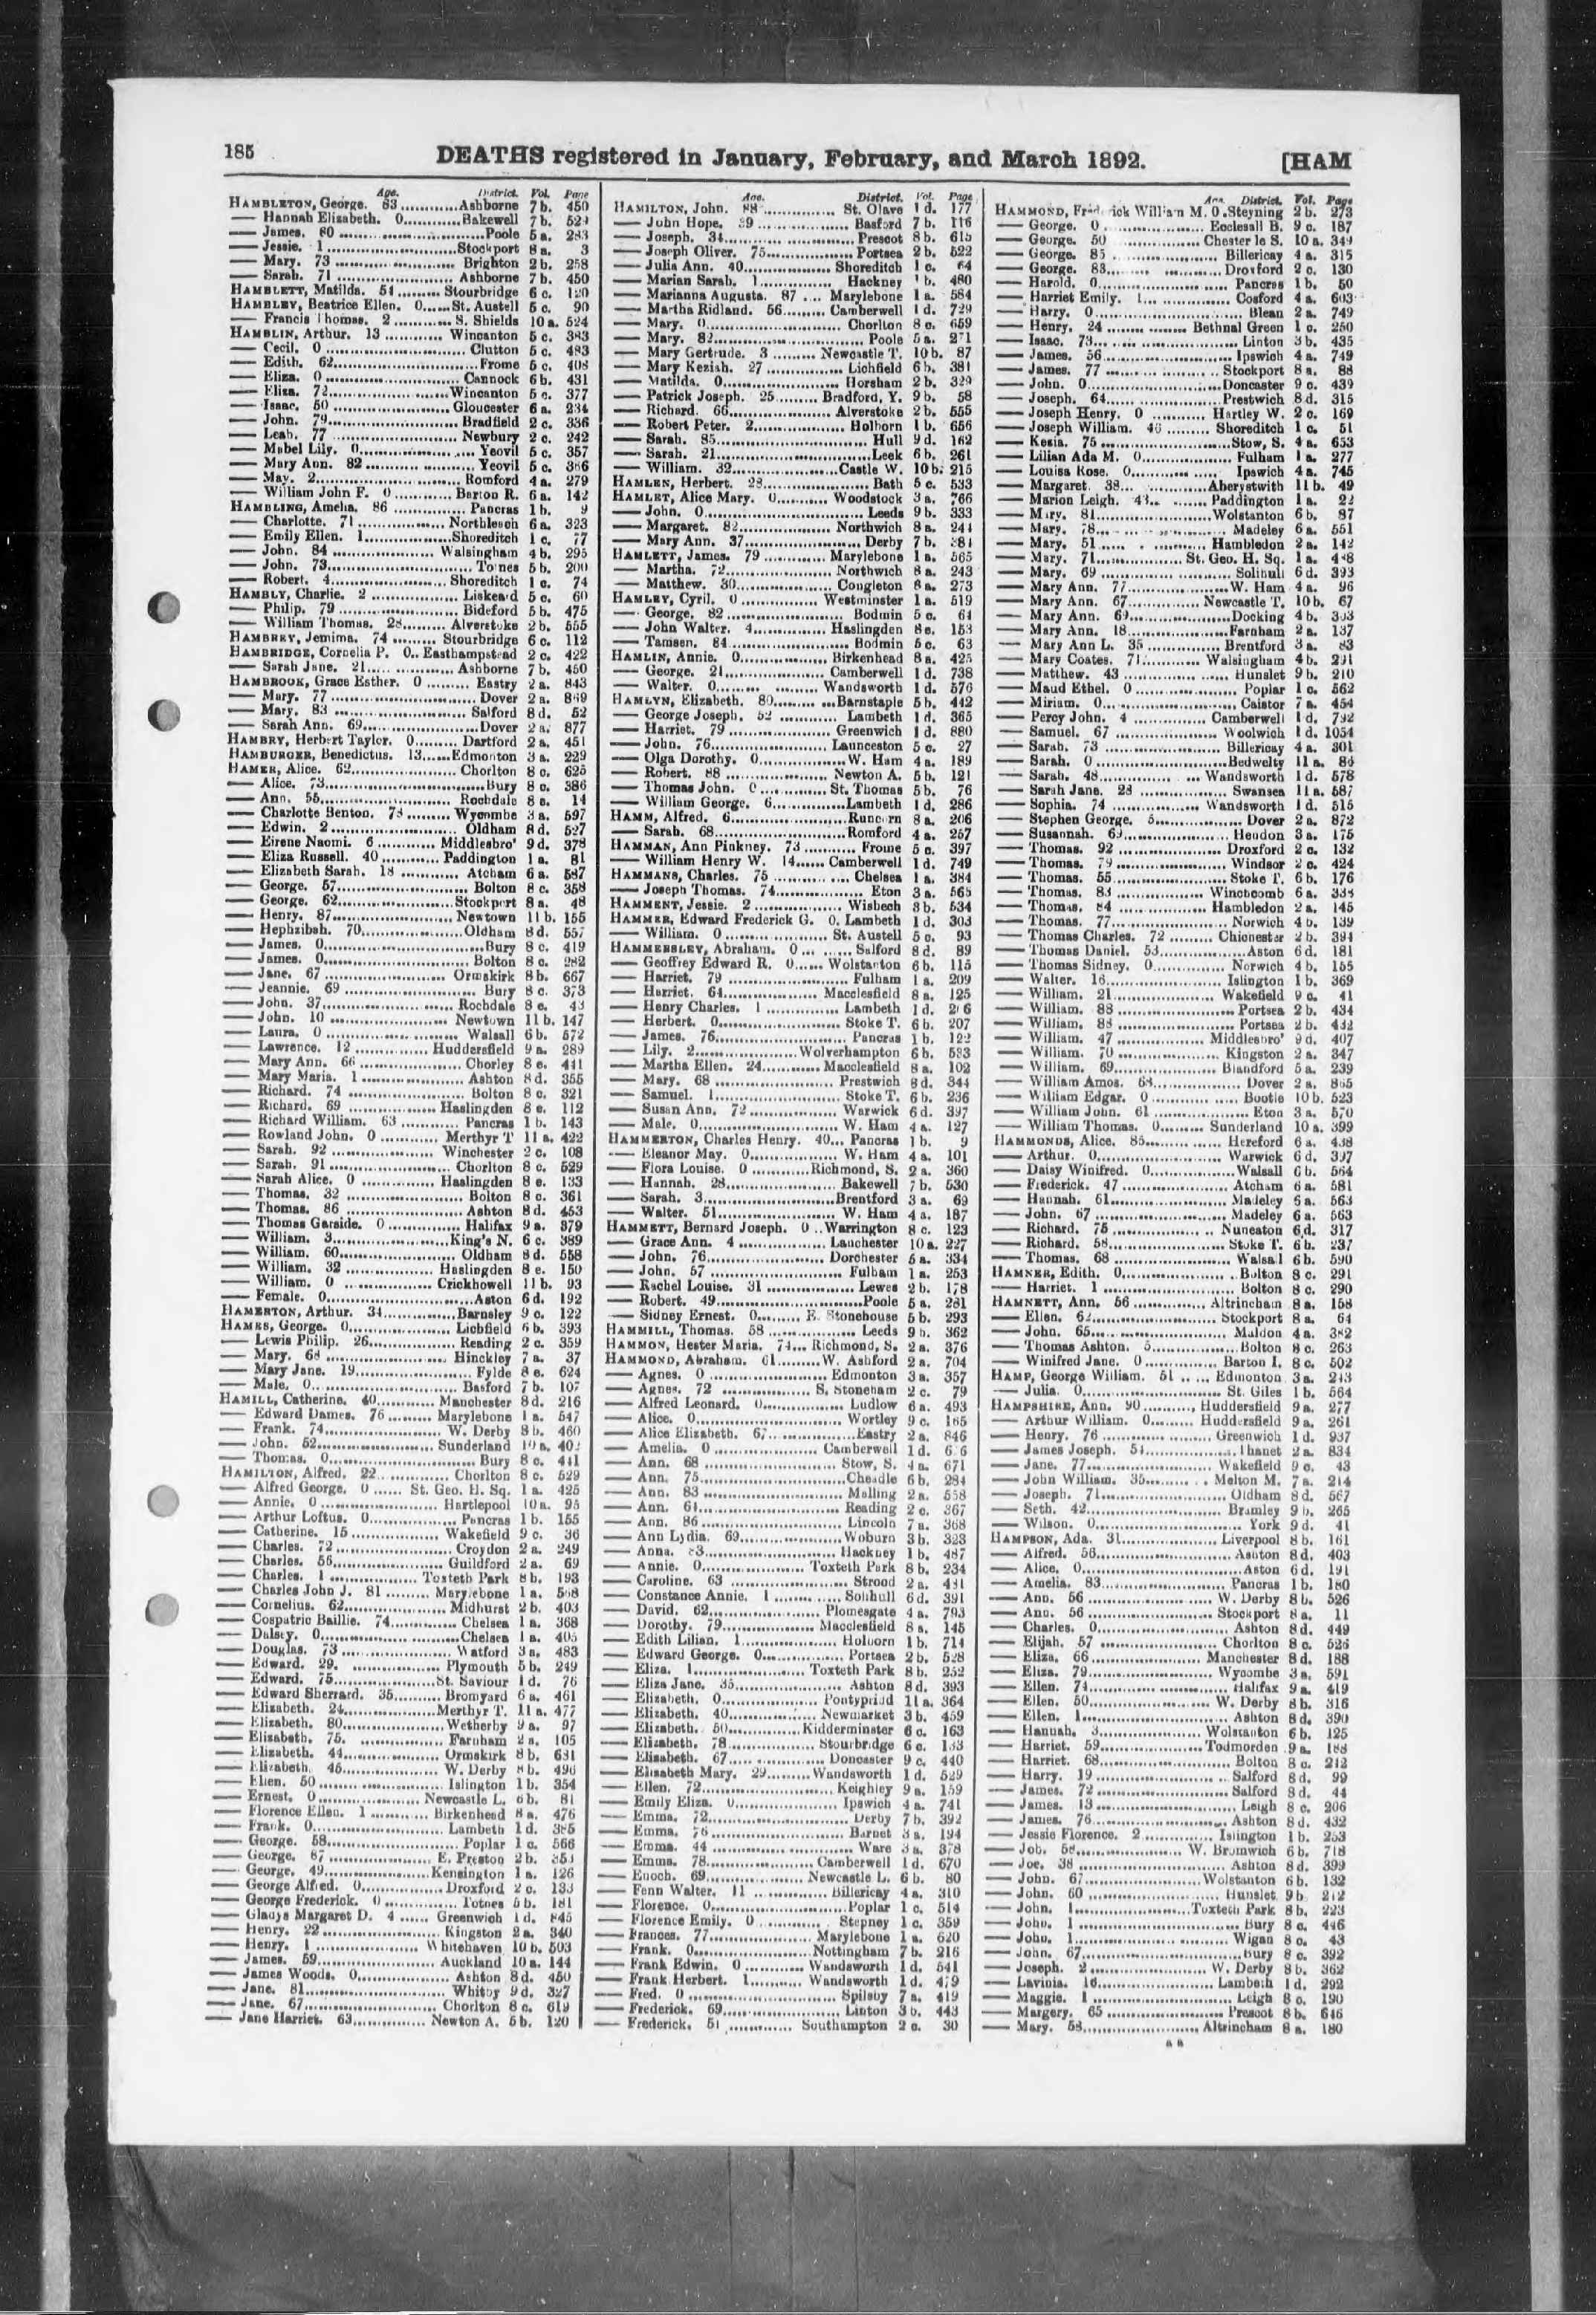 185 DEATHS registered in January, February, and March 1892. [HAM
Age. District. Vol. Page
HAMBLETON, George. 83 ............Ashborne 7 b. 450
— Hannah Elizabeth. 0............Bakewell 7 b. 524
— James. 80 ..............................Poole 5 a. 283
— Jessie. 1 ..........................Stockport 8 a. 3
— Mary. 73 .......................... Brighton 2 b. 258
— Sarah. 71 .......................... Ashborne 7 b. 450
HAMBLETT, Matilda. 51 ......... Stourbridge 6 c. 120
HAMBLEY, Beatrice Ellen. 0......St. Austell 5 c. 90
— Francis Thomas. 2 ............ S. Shields 10 a. 524
HAMBLIN, Arthur. 13 ............ Wincanton 5 c. 383
— Cecil. 0 ............................ Clutton 5 c. 483
— Edith. 62............................. Frome 5 c. 408
— Eliza. 0 ............................ Cannock 6 b. 431
— Eliza. 72..........................Wincanton 5 c. 377
— Isaac. 50 ........................ Gloucester 6 a. 234
— John. 79.......................... Bradfield 2 c. 336
— Leah. 77 .......................... Newbury 2 c. 242
— Mabel Lily. 0........................ Yeovil 5 c. 357
— Mary Ann. 82 ...................... Yeovil 5 c. 366
— May. 2............................... Romford 4 a. 279
— William John F. 0 ............ Barton R. 6 a. 142
HAMBLING, Amelia. 86 ............... Pancras 1 b. 9
— Charlotte. 71 .................. Northleach 6 a. 323
— Emily Ellen. 1..................Shoreditch 1 c. 77
— John. 84 ..................... Walsingham 4 b. 295
— John. 73.............................. Totnes 5 b. 200
— Robert. 4........................ Shoreditch 1 c. 74
HAMBLY, Charlie. 2 .................. Liskeard 5 c. 60
— Philip. 79 ......................... Bideford 5 b. 475
— William Thomas. 28......... Alverstoke 2 b. 555
HAMBREY, Jemima. 74 ......... Stourbridge 6 c. 112
HAMBRIDGE, Cornelia P. 0.. Easthampstead 2 c. 422
— Sarah Jane. 21.................. Ashborne 7 b. 450
HAMBROOK, Grace Esther. 0 ......... Eastry 2 a. 843
— Mary. 77 .............................. Dover 2 a. 869
— Mary. 83 ............................ Salford 8 d. 52
— Sarah Ann. 69........................Dover 2 a. 877
HAMBRY, Herbert Taylor. 0......... Dartford 2 a. 451
HAMBURGER, Benedictus. 13......Edmonton 3 a. 229
HAMER, Alice. 62..................... Chorlton 8 c. 625
— Alice. 73............................... Bury 8 c. 386
— Ann. 55........................... Rochdale 8 e. 14
— Charlotte Benton. 73 ......... Wycombe 3 a. 597
— Edwin. 2........................... Oldham 8 d. 527
— Eirene Naomi. 6 ............ Middlesbro' 9 d. 378
— Eliza Russell. 40............ Paddington 1 a. 81
— Elizabeth Sarah. 18 ............ Atcham 6 a. 587
— George. 57........................... Bolton 8 c. 358
— George. 62........................Stockport 8 a. 48
— Henry. 87......................... Newtown 11 b. 155
— Hephzibah. 70.....................Oldham 8 d. 557
— James. 0..................................Bury 8 c. 419
— James. 0............................... Bolton 8 c. 282
— Jane. 67 .......................... Ormskirk 8 b. 667
— Jeannie. 69 ............................ Bury 8 c. 373
— John. 37............................. Rochdale 8 e. 43
— John. 10 .......................... Newtown 11 b. 147
— Laura. 0 ............................ Walsall 6 b. 572
— Lawrence. 12 ............... Huddersfield 9 a. 289
— Mary Ann. 66 ...................... Chorley 8 e. 411
— Mary Maria. 1 ..................... Ashton 8 d. 355
— Richard. 74 ......................... Bolton 8 c. 321
— Richard. 69 .................. Haslingden 8 e. 112
— Richard William. 63 ............ Pancras 1 b. 143
— Rowland John. 0 ............ Merthyr T 11 a. 422
— Sarah. 92 ........................ Winchester 2 c. 108
— Sarah. 91 .......................... Chorlton 8 c. 529
— Sarah Alice. 0 ............... Haslingden 8 e. 133
— Thomas. 32 ........................ Bolton 8 c. 361
— Thomas. 86 ........................ Ashton 8 d. 453
— Thomas Garside. 0 ............... Halifax 9 a. 379
— William. 3.......................King's N. 6 c. 389
— William. 60......................... Oldham 8 d. 558
— William. 32 .................. Haslingden 8 e. 150
— William. 0 .................. Crickhowell 11 b. 93
— Female. 0.............................Aston 6 d. 192
HAMERTON, Arthur. 34...............Barnsley 9 c. 122
HAMES, George. 0..................... Lichfield 6 b. 393
— Lewis Philip. 26.................. Reading 2 c. 359
— Mary. 68 ............................ Hinckley 7 a. 37
— Mary Jane. 19........................ Fylde 8 e. 624
— Male. 0............................... Basford 7 b. 107
HAMILL, Catherine. 40............ Manchester 8 d. 216
— Edward Dames. 76......... Marylebone 1 a. 547
— Frank. 74.......................... W. Derby 8 b. 460
— John. 52........................ Sunderland 10 a.
— Thomas. 0............................. Bury 8 c. 411
HAMILTON, Alfred. 22............... Chorlton 8 c. 529
— Alfred George. 0 ...... St. Geo. H. Sq. 1 a. 425
— Annie. 0 ......................... Hartlepool 10 a. 95
— Arthur Loftus. 0.................. Pancras 1 b. 155
— Catherine. 15 .................. Wakefield 9 c. 36
— Charles. 72 ........................ Croydon 2 a. 249
— Charles. 56...................... Guildford 2 a. 69
— Charles. 1 .................. Toxteth Park 8 b. 193
— Charles John J. 81 ......... Marylebone 1 a. 568
— Cornelius. 62..................... Midhurst 2 b. 403
— Cospatric Baillie. 74............ Chelsea 1 a. 368
— Daisty. 0............................. Chelsea 1 a. 405
— Douglas. 73 ...................... Watford 3 a. 483
— Edward. 29. ..................... Plymouth 5 b. 249
— Edward. 75.....................St. Saviour 1 d. 76
— Edward Sherrard. 35.......... Bromyard 6 a. 461
— Elizabeth. 24..................Merthyr T. 11 a. 477
— Elizabeth. 80..................... Wetherby 9 a. 97
— Elizabeth. 75. .................. Farnham 2 a. 105
— Elizabeth. 44..................... Ormskirk 8 b. 631
— Elizabeth. 45..................... W. Derby 8 b. 496
— Ellen. 50 ......................... Islington 1 b. 354
— Ernest. 0 ..................... Newcastle L. 6 b. 81
— Florence Ellen. 1 ............ Birkenhead 8 a. 476
— Frank. 0........................... Lambeth 1 d. 385
— George. 58........................... Poplar 1 c. 566
— George. 67 ..................... E. Preston 2 b. 353
— George. 49..................... Kensington 1 a. 126
— George Alfred. 0................ Droxford 2 c. 133
— George Frederick. 0 ............. Totnes 5 b. 181
— Gladys Margaret D. 4 ...... Greenwich 1 d. 845
— Henry. 22 ........................ Kingston 2 a. 340
— Henry. 1 ..................... Whitehaven 10 b. 503
— James. 59........................ Auckland 10 a. 144
— James Woods. 0.................. Ashton 8 d. 450
— Jane. 81............................. Whitby 9 d. 327
— Jane. 67........................... Chorlton 8 c. 619
— Jane Harriet. 63............... Newton A. 5 b. 120
Age. District. Vol. Page
HAMILTON, John. 88 ............... St. Olave 1 d. 177
— John Hope. 39 ................... Basford 7 b. 116
— Joseph. 34........................... Prescot 8 b. 615
— Joseph Oliver. 75.................. Portsea 2 b. 522
— Julia Ann. 40.................. Shoreditch 1 c. 64
— Marian Sarah. 1.................. Hackney 1 b. 480
— Marianna Augusta. 87 .... Marylebone 1 a. 584
— Martha Ridland. 56......... Camberwell 1 d. 729
— Mary. 0........................... Chorlton 8 c. 659
— Mary. 82............................. Poole 5 a. 271
— Mary Gertrude. 3 ......... Newcastle T. 10 b. 87
— Mary Keziah. 27 ............... Lichfield 6 b. 381
— Matilda. 0......................... Horsham 2 b. 329
— Patrick Joseph. 25......... Bradford, Y. 9 b. 58
— Richard. 66..................... Alverstoke 2 b. 555
— Robert Peter. 2.................. Holborn 1 b. 656
— Sarah. 85.............................. Hull 9 d. 162
— Sarah. 21.............................. Leek 6 b. 261
— William. 32..................... Castle W. 10 b. 215
HAMLEN, Herbert. 28..................... Bath 5 c. 533
HAMLET, Alice Mary. 0.......... Woodstock 3 a. 766
— John. 0............................... Leeds 9 b. 333
— Margaret. 82.................. Northwich 8 a. 241
— Mary Ann. 37..................... Derby 7 b. 381
HAMLETT, James. 79 ............ Marylebone 1 a. 565
— Martha. 72..................... Northwich 8 a. 243
— Matthew. 30..................... Congleton 8 a. 273
HAMLEY, Cyril. 0 ............... Westminster 1 a. 519
— George. 82 ........................ Bodmin 5 c. 61
— John Walter. 4............... Haslingden 8 e. 153
— Tamsen. 84....................... Bodmin 5 c. 63
HAMLIN, Annie. 0.................. Birkenhead 8 a. 425
— George. 21..................... Camberwell 1 d. 738
— Walter. 0..................... Wandsworth 1 d. 576
HAMLYN, Elizabeth. 80............ Barnstaple 5 b. 442
— George Joseph. 52 ............ Lambeth 1 d. 365
— Harriet. 79 ..................... Greenwich 1 d. 880
— John. 76........................ Launceston 5 c. 27
— Olga Dorothy. 0............... W. Ham 4 a. 189
— Robert. 88 ..................... Newton A. 5 b. 121
— Thomas John. 0 ............ St. Thomas 5 b. 76
— William George. 6............... Lambeth 1 d. 286
HAMM, Alfred. 6........................ Runcorn 8 a. 206
— Sarah. 68...........................Romford 4 a. 257
HAMMAN, Ann Pinkney. 73 .......... Frome 5 c. 397
— William Henry W. 14...... Camberwell 1 d. 749
HAMMANS, Charles. 75 ............... Chelsea 1 a. 384
— Joseph Thomas. 74.................. Eton 3 a. 565
HAMMENT, Jessie. 2 .................. Wisbech 3 b. 534
HAMMER, Edward Frederick G. 0. Lambeth 1 d. 303
— William. 0..................... St. Austell 5 c. 93
HAMMERSLEY, Abraham. 0 ......... Salford 8 d. 89
— Geoffrey Edward R. 0...... Wolstanton 6 b. 115
— Harriet. 79 ........................ Fulham 1 a. 209
— Harriet. 64..................... Macclesfield 8 a. 125
— Henry Charles. 1 ............... Lambeth 1 d.
— Herbert. 0........................ Stoke T. 6 b. 207
— James. 76........................... Pancras 1 b. 122
— Lily. 2..................... Wolverhampton 6 b. 533
— Martha Ellen. 24............ Macclesfield 8 a. 102
— Mary. 68 ........................ Prestwich 8 d. 344
— Samuel. 1........................ Stoke T. 6 b. 236
— Susan Ann. 72 .................. Warwick 6 d. 397
— Male. 0........................... W. Ham 4 a. 127
HAMMERTON, Charles Henry. 40... Pancras 1 b. 9
— Eleanor May. 0.................. W. Ham 4 a. 101
— Flora Louise. 0 ............ Richmond, S. 2 a. 360
— Hannah. 28..................... Bakewell 7 b. 530
— Sarah. 3.........................Brentford 3 a. 69
— Walter. 51........................ W. Ham 4 a. 187
HAMMETT, Bernard Joseph. 0 .. Warrington 8 c. 123
— Grace Ann. 4 .................. Lanchester 10 a. 227
— John. 76........................ Dorchester 5 a. 334
— John. 57 ........................... Fulham 1 a. 253
— Rachel Louise. 31 ................. Lewes 2 b. 178
— Robert. 49...........................Poole 5 a. 281
— Sidney Ernest. 0......... E. Stonehouse 5 b. 293
HAMMILL, Thomas. 58 .................. Leeds 9 b. 362
HAMMON, Hester Maria. 74... Richmond, S. 2 a. 376
HAMMOND, Abraham. 61......... W. Ashford 2 a. 704
— Agnes. 0 ........................ Edmonton 3 a. 357
— Agnes. 72 .................. S. Stoneham 2 c. 79
— Alfred Leonard. 0............... Ludlow 6 a. 493
— Alice. 0........................... Wortley 9 c. 165
— Alice Elizabeth. 67............... Eastry 2 a. 846
— Amelia. 0 ..................... Camberwell 1 d.
— Ann. 68 ........................... Stow, S. 4 a. 671
— Ann. 75........................... Cheadle 6 b. 284
— Ann. 83 ........................... Malling 2 a. 558
— Ann. 61........................... Reading 2 c. 367
— Ann. 86 ........................... Lincoln 7 a. 368
— Ann Lydia. 69..................... Woburn 3 b. 323
— Anna. 83........................... Hackney 1 b. 487
— Annie. 0..................... Toxteth Park 8 b. 234
— Caroline. 63 ..................... Strood 2 a. 431
— Constance Annie. 1 ............ Solihull 6 d. 391
— David. 62..................... Plomesgate 4 a. 793
— Dorothy. 79.................. Macclesfield 8 a. 145
— Edith Lilian. 1.................. Holborn 1 b. 714
— Edward George. 0............... Portsea 2 b. 528
— Eliza. 1..................... Toxteth Park 8 b. 252
— Eliza Jane. 35..................... Ashton 8 d. 393
— Elizabeth. 0..................... Pontypridd 11 a. 364
— Elizabeth. 40.................. Newmarket 3 b. 459
— Elizabeth. 50............Kidderminster 6 c. 163
— Elizabeth. 78 .................. Stourbridge 6 c. 133
— Elizabeth. 67.................. Doncaster 9 c. 440
— Elizabeth Mary. 29......... Wandsworth 1 d. 529
— Ellen. 72 ........................ Keighley 9 a. 159
— Emily Eliza. 0.................. Ipswich 4 a. 741
— Emma. 72........................... Derby 7 b. 392
— Emma. 76 ........................ Barnet 3 a. 194
— Emma. 44 ........................... Ware 3 a. 378
— Emma. 78..................... Camberwell 1 d. 670
— Enoch. 69..................... Newcastle L. 6 b. 80
— Fenn Walter. 11 ............... Billericay 4 a. 310
— Florence. 0........................ Poplar 1 c. 514
— Florence Emily. 0 ............ Stepney 1 c. 359
— Frances. 77.................. Marylebone 1 a. 620
— Frank. 0..................... Nottingham 7 b. 216
— Frank Edwin. 0 ............ Wandsworth 1 d. 541
— Frank Herbert. 1......... Wandsworth 1 d. 479
— Fred. 0 ........................... Spilsby 7 a. 419
— Frederick. 69.................. Linton 3 b. 443
— Frederick. 51 ............ Southampton 2 c. 30
Age. District. Vol. Page
HAMMOND, Frederick William M. 0 .Steyning 2 b. 273
— George. 0 ..................... Ecclesall B. 9 c. 187
— George. 50 ............... Chester le S. 10 a. 349
— George. 85 ..................... Billericay 4 a. 315
— George. 88..................... Droxford 2 c. 130
— Harold. 0........................ Pancras 1 b. 50
— Harriet Emily. 1............... Cosford 4 a. 603
— Harry. 0........................... Blean 2 a. 749
— Henry. 24 ............... Bethnal Green 1 c. 250
— Isaac. 73........................... Linton 3 b. 435
— James. 56 ........................ Ipswich 4 a. 749
— James. 77 ..................... Stockport 8 a. 88
— John. 0........................ Doncaster 9 c. 439
— Joseph. 64..................... Prestwich 8 d. 315
— Joseph Henry. 0 ............ Hartley W. 2 c. 169
— Joseph William. 46 ......... Shoreditch 1 c. 51
— Kezia. 75 ........................ Stow, S. 4 a. 653
— Lilian Ada M. 0.................. Fulham 1 a. 277
— Louisa Rose. 0.................. Ipswich 4 a. 745
— Margaret. 38............... Aberystwith 11 b. 49
— Marion Leigh. 43............ Paddington 1 a. 22
— Mary. 81..................... Wolstanton 6 b. 87
— Mary. 78........................... Madeley 6 a. 551
— Mary. 51 ..................... Hambledon 2 a. 142
— Mary. 71............... St. Geo. H. Sq. 1 a. 448
— Mary. 69 ........................ Solihull 6 d. 393
— Mary Ann. 77..................... W. Ham 4 a. 96
— Mary Ann. 67............ Newcastle T. 10 b. 67
— Mary Ann. 69..................... Docking 4 b. 303
— Mary Ann. 18..................... Farnham 2 a. 137
— Mary Ann L. 35............... Brentford 3 a. 83
— Mary Coates. 71............ Walsingham 4 b. 291
— Matthew. 43 ..................... Hunslet 9 b. 210
— Maud Ethel. 0 .................. Poplar 1 c. 562
— Miriam. 0........................ Caistor 7 a. 454
— Percy John. 4 ............... Camberwell 1 d. 792
— Samuel. 67 ..................... Woolwich 1 d. 1054
— Sarah. 73 ..................... Billericay 4 a. 301
— Sarah. 0........................ Bedwelty 11 a. 84
— Sarah. 48..................... Wandsworth 1 d. 578
— Sarah Jane. 23 ............... Swansea 11 a. 587
— Sophia. 74 ............... Wandsworth 1 d. 515
— Stephen George. 5............... Dover 2 a. 872
— Susannah. 69..................... Hendon 3 a. 175
— Thomas. 92 ..................... Droxford 2 c. 132
— Thomas. 79 ..................... Windsor 2 c. 424
— Thomas. 55 ..................... Stoke T. 6 b. 176
— Thomas. 83 .................. Winchcomb 6 a. 334
— Thomas. 84 .................. Hambledon 2 a. 145
— Thomas. 77........................ Norwich 4 b. 139
— Thomas Charles. 72 ......... Chichester 2 b. 391
— Thomas Daniel. 53............... Aston 6 d. 181
— Thomas Sidney. 0............... Norwich 4 b. 155
— Walter. 16..................... Islington 1 b. 369
— William. 21..................... Wakefield 9 c. 41
— William. 88 ..................... Portsea 2 b. 434
— William. 83 ..................... Portsea 2 b. 432
— William. 47 .................. Middlesbro' 9 d. 407
— William. 70 ..................... Kingston 2 a. 347
— William. 69..................... Blandford 5 a. 239
— William Amos. 63............... Dover 2 a. 865
— William Edgar. 0 ............... Bootle 10 b. 523
— William John. 61 ..................... Eton 3 a. 570
— William Thomas. 0......... Sunderland 10 a. 399
HAMMONDS, Alice. 85............... Hereford 6 a. 438
— Arthur. 0........................ Warwick 6 d. 397
— Daisy Winifred. 0............... Walsall 6 b. 564
— Frederick. 47 ..................... Atcham 6 a. 581
— Hannah. 61........................ Madeley 6 a. 563
— John. 67 ........................... Madeley 6 a. 563
— Richard. 75 ..................... Nuneaton 6 d. 317
— Richard. 58........................ Stoke T. 6 b. 237
— Thomas. 68 ........................ Walsall 6 b. 590
HAMNER, Edith. 0........................ Bolton 8 c. 291
— Harriet. 1 ........................ Bolton 8 c. 290
HAMNETT, Ann. 56 ............... Altrincham 8 a. 158
— Ellen. 62........................ Stockport 8 a. 64
— John. 65........................... Maldon 4 a. 382
— Thomas Ashton. 5............... Bolton 8 c. 263
— Winifred Jane. 0 ............ Barton I. 8 c. 502
HAMP, George William. 51 ...... Edmonton 3 a. 243
— Julia. 0........................... St. Giles 1 b. 564
HAMPSHIRE, Ann. 90............ Huddersfield 9 a. 277
— Arthur William. 0......... Huddersfield 9 a. 261
— Henry. 76 ..................... Greenwich 1 d. 937
— James Joseph. 51............... Thanet 2 a. 834
— Jane. 77........................ Wakefield 9 c. 43
— John William. 35............ Melton M. 7 a. 214
— Joseph. 71........................ Oldham 8 d. 567
— Seth. 42........................... Bramley 9 b. 265
— Wilson. 0........................... York 9 d. 41
HAMPSON, Ada. 31..................... Liverpool 8 b. 161
— Alfred. 56........................... Ashton 8 d. 403
— Alice. 0............................... Aston 6 d. 191
— Amelia. 83........................... Pancras 1 b. 180
— Ann. 56 ........................ W. Derby 8 b. 526
— Ann. 56 ........................ Stockport 8 a. 11
— Charles. 0........................ Ashton 8 d. 449
— Elijah. 57 ........................ Chorlton 8 c. 526
— Eliza. 66........................ Manchester 8 d. 188
— Eliza. 79........................ Wycombe 3 a. 591
— Ellen. 74........................... Halifax 9 a. 419
— Ellen. 50........................ W. Derby 8 b. 316
— Ellen. 1........................... Ashton 8 d. 390
— Hannah. 3..................... Wolstanton 6 b. 125
— Harriet. 59..................... Todmorden 9 a. 188
— Harriet. 68........................ Bolton 8 c. 212
— Harry. 19 ........................ Salford 8 d. 99
— James. 72 ........................ Salford 8 d. 44
— James. 13........................... Leigh 8 c. 206
— James. 76........................... Ashton 8 d. 432
— Jessie Florence. 2............ Islington 1 b. 253
— Job. 58........................ W. Bromwich 6 b. 718
— Joe. 38 ........................... Ashton 8 d. 399
— John. 67..................... Wolstanton 6 b. 132
— John. 60 ........................ Hunslet 9 b 212
— John. 1..................... Toxteth Park 8 b. 223
— John. 1 ........................... Bury 8 c. 446
— John. 1........................... Wigan 8 c. 43
— John. 67........................... Bury 8 c. 392
— Joseph. 2........................ W. Derby 8 b. 362
— Lavinia. 16..................... Lambeth 1 d. 292
— Maggie. 1 ........................... Leigh 8 c. 190
— Margery. 65 ..................... Prescot 8 b. 646
— Mary. 58........................ Altrincham 8 a. 180